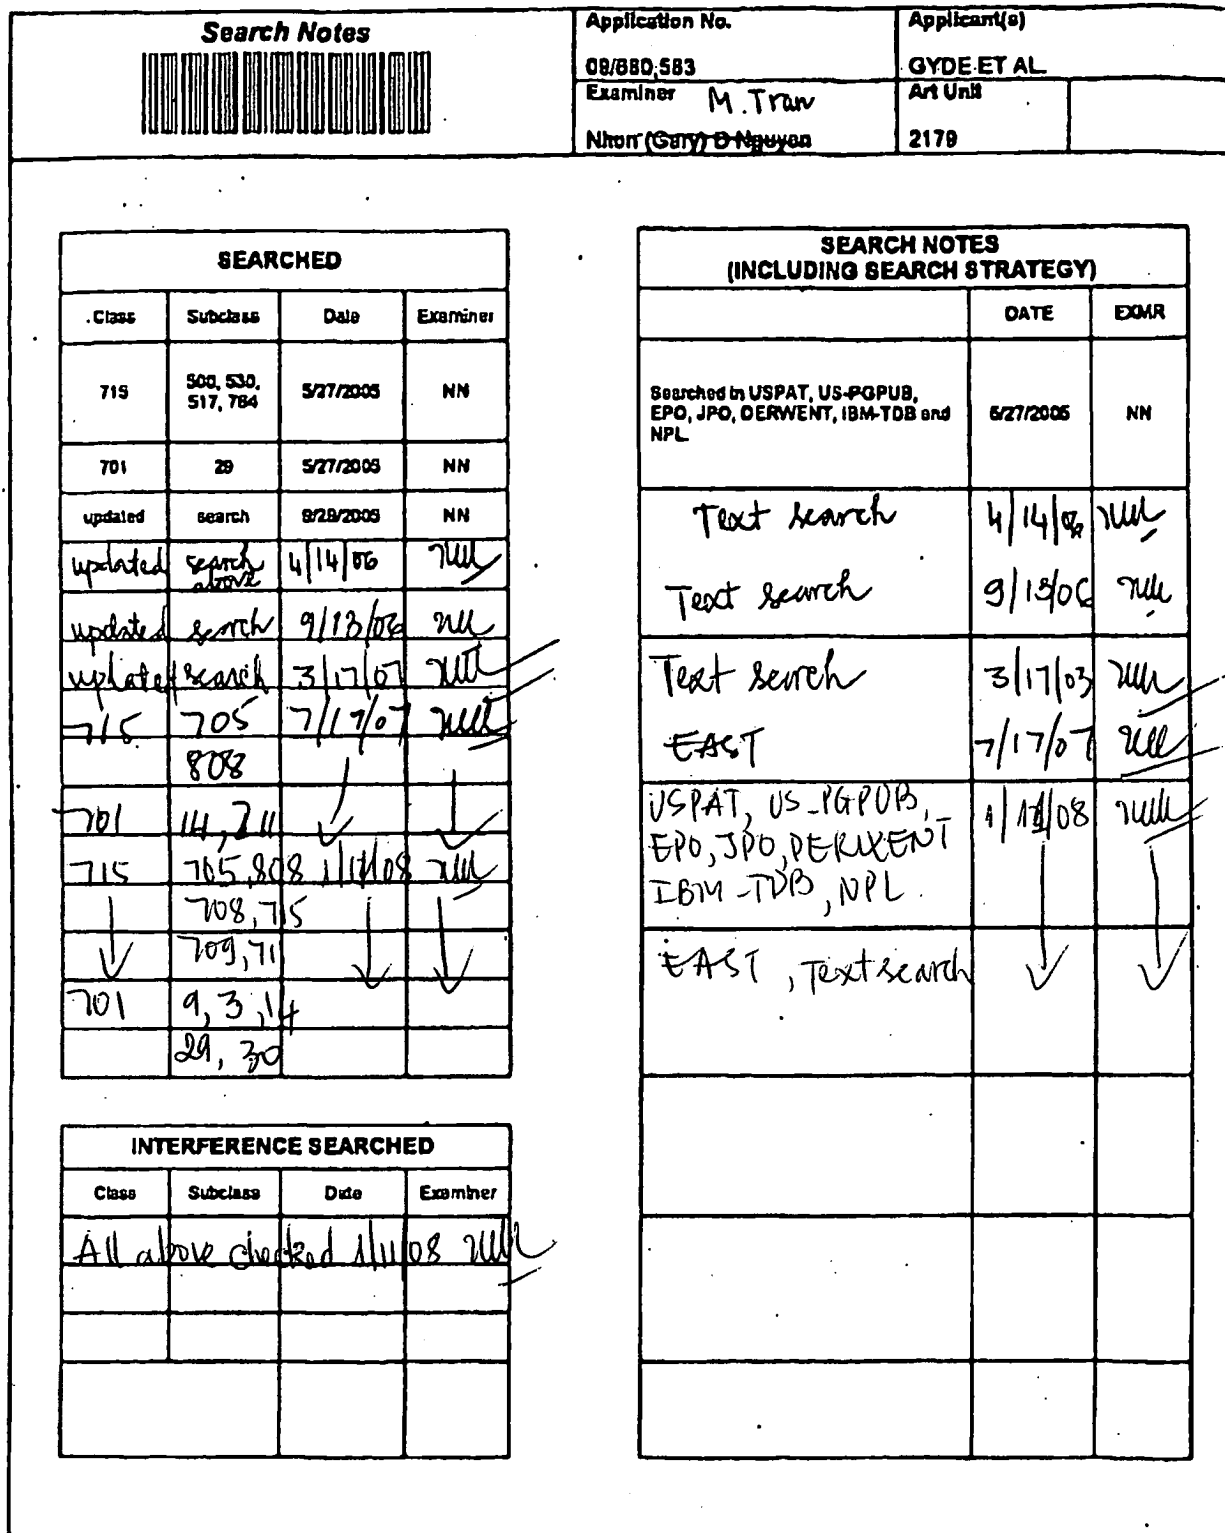 Search Notes
Application No.
09/680,583
Applicant(s)
GYDE ET AL.
Examiner M. Tran
Nhon (Gary) D Nguyen
Art Unit
2179
SEARCHED
Class Subclass Date Examiner
715 500, 530, 517, 764 5/27/2005 NN
701 29 5/27/2005 NN
updated search 9/29/2005 NN
updated search above 4/14/06
updated search 9/13/06
updated search 3/17/07
715 705 7/17/07
808
701 14, 211
715 705, 808 1/11/08
708, 715
709, 711
701 9, 3, 14
29, 30
INTERFERENCE SEARCHED
Class Subclass Date Examiner
All above checked 1/11/08
SEARCH NOTES
(INCLUDING SEARCH STRATEGY)
DATE EXMR
Searched in USPAT, US-PGPUB,
EPO, JPO, DERWENT, IBM-TDB and
NPL.
5/27/2005 NN
Text search 4/14/06
Text search 9/13/06
Text search 3/17/03
EAST 7/17/07
USPAT, US-PGPUB, 1/11/08
EPO, JPO, DERWENT
IBM-TDB, NPL.
EAST, Text search